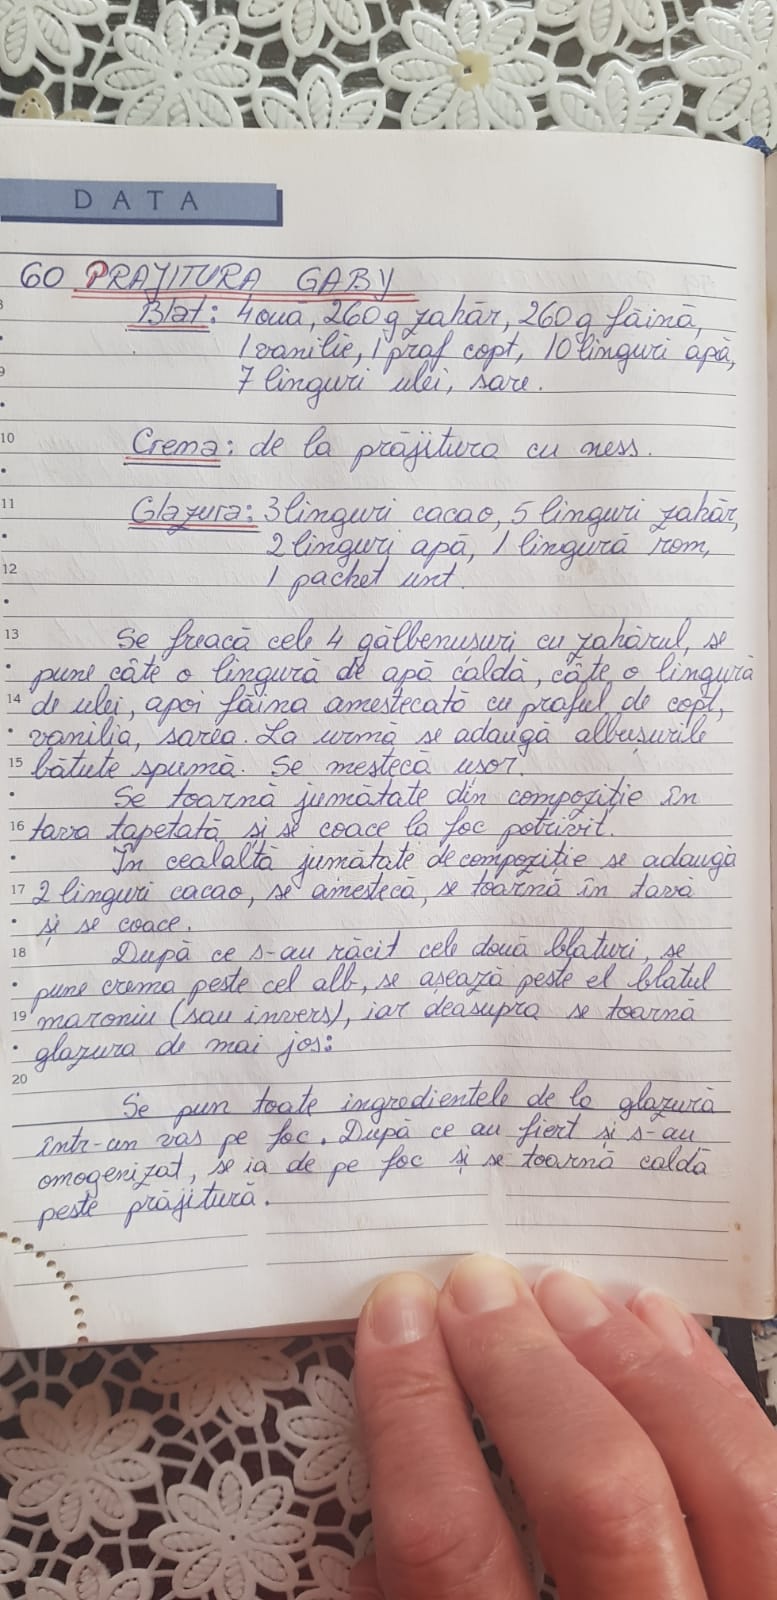 DATA
60 PRAJITURA GABY
Blat: 4 ouă, 260 g zahăr, 260 g făină,
1 vanilie, 1 praf copt, 10 linguri apă,
7 linguri ulei, sare.
10 Crema: de la prăjitura cu ness.
11 Glazura: 3 linguri cacao, 5 linguri zahăr,
2 linguri apă, 1 lingură rom,
12 1 pachet unt.
13 Se freacă cele 4 gălbenușuri cu zahărul, se
pune câte o lingură de apă caldă, câte o lingură
14 de ulei, apoi făina amestecată cu praful de copt,
vanilia, sarea. La urmă se adaugă albușurile
15 bătute spumă. Se mestecă ușor.
Se toarnă jumătate din compoziție în
16 tava tapetată și se coace la foc potrivit.
În cealaltă jumătate de compoziție se adaugă
17 2 linguri cacao, se amestecă, se toarnă în tavă
și se coace.
18 După ce s-au răcit cele două blaturi, se
pune crema peste cel alb, se așează peste el blatul
19 maroniu (sau invers), iar deasupra se toarnă
glazura de mai jos:
20
Se pun toate ingredientele de la glazură
într-un vas pe foc. După ce au fiert și s-au
omogenizat, se ia de pe foc și se toarnă caldă
peste prăjitură.